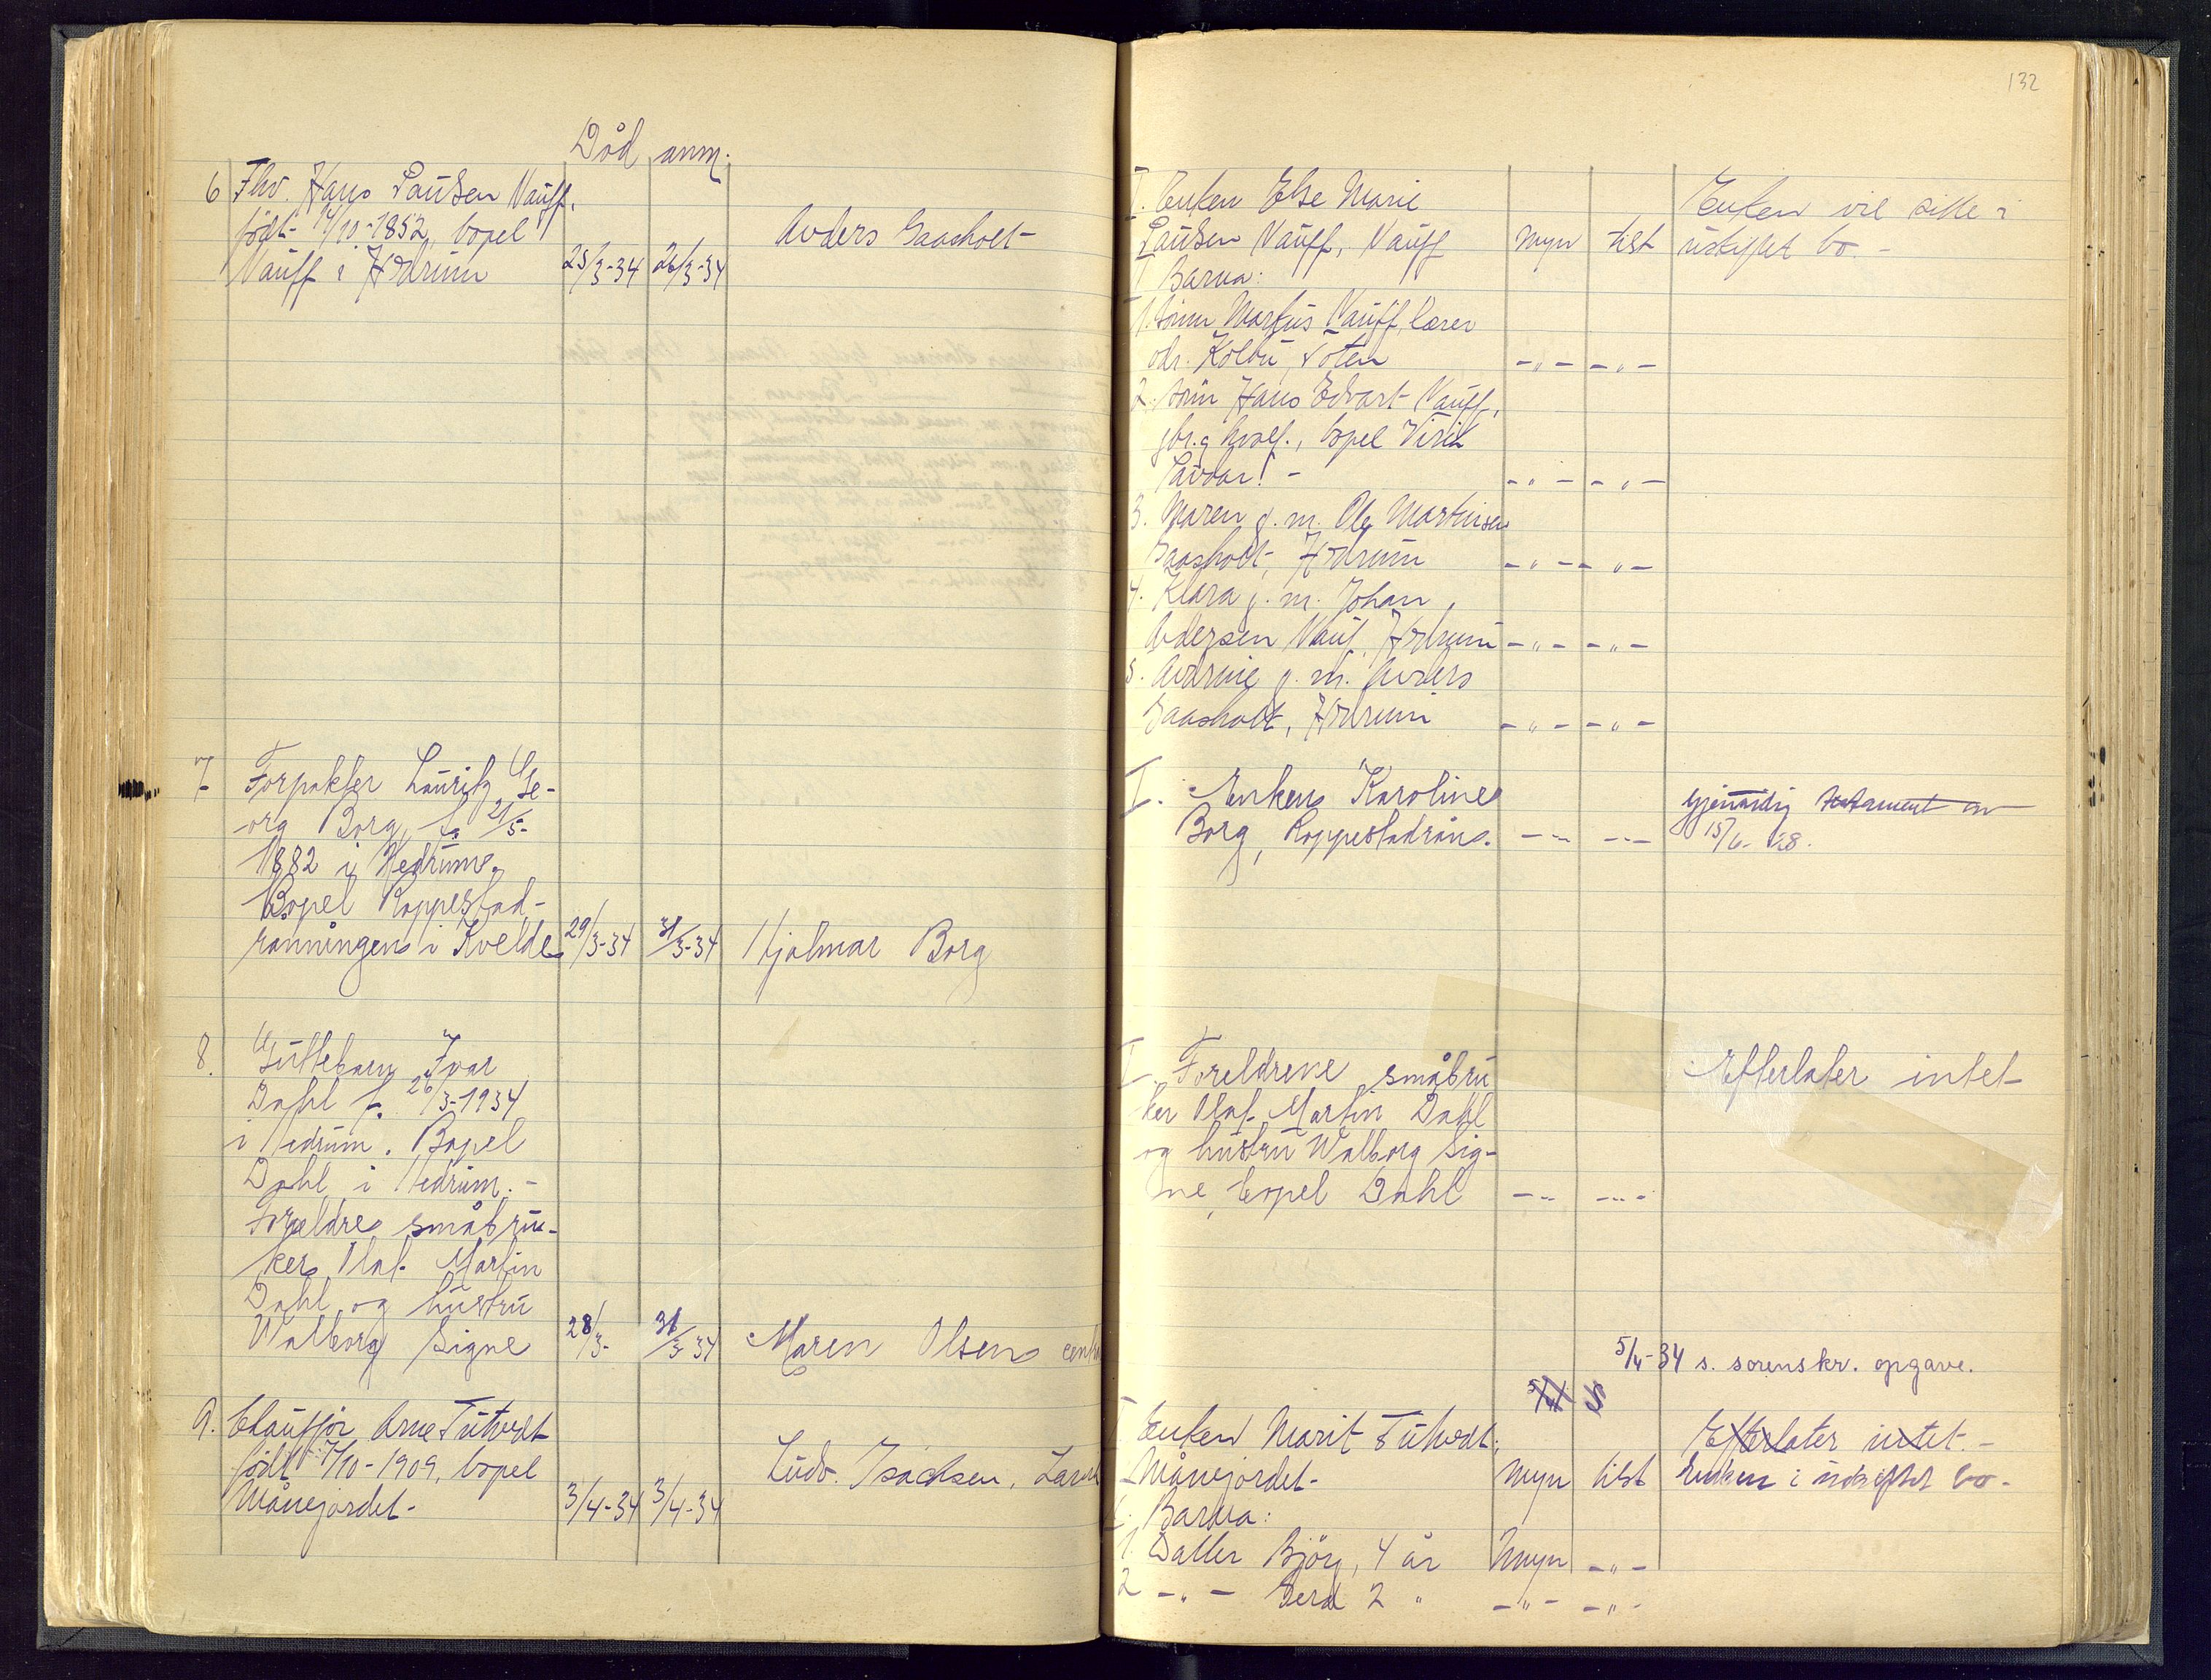 132
Död anm.
6 Fhv. Hans Paulsen Nauff,
født 14/10-1852, bopel
Nauff i Hedrum 25/3-34 26/3-34 Anders Gaasholt
7 Forpakter Lauritz Ge-
org Borg, f. 21/5-
1882 i Hedrum.
Bopel Roppestad-
rønningen i Kvelde 29/3-34 31/3-34 Hjalmar Borg
8. Guttebarn Ivar
Dahl f. 26/3-1934
i Hedrum. Bopel
Dahl i Hedrum.-
Foreldre småbru-
ker Olaf Martin
Dahl og hustru
Walborg Signe 28/3- 31/3-34 Maren Olsen
9. Chauffør Arne Tutvedt
født 7/10-1909, bopel
Månejordet- 3/4-34 3/4-34 Ludv. Isachsen,
I. Enken Else Marie
Paulsen Nauff, Nauff myn tilst
Enken vil sitte i
uskiftet bo.-
Barna:
1. sønn Markus Nauff, lærer
adr. Kolbu, Toten -"- -"-
2. sønn Hans Edvart Nauff,
bopel
-"- -"-
3. Maren g. m. Ole Martinsen
Gaasholt, Hedrum -"- -"-
4. Klara g. m. Johan
Andersen Nauf, Hedrum -"- -"-
5. g. m. Anders
Gaasholt, Hedrum -"- -"-
I. Enken Karoline
Borg, Roppestadrøn. -"- -"-
Gjensidig testament av
15/6-28.
I Foreldrene småbru
ker Olaf Martin Dahl
og hustru Walborg Sig-
ne, bopel Dahl -"- -"-
Efterlater intet
5/4-34 s. sorenskr. opgave.
I Enken Marit Tutvedt,
Månejordet- myn tilst
Efterlater intet.-
Enken i uskiftet bo-
Barna:
1. Datter Bjørg, 4 år myn -"-
2 -"- Gerd 2 " -"- -"-